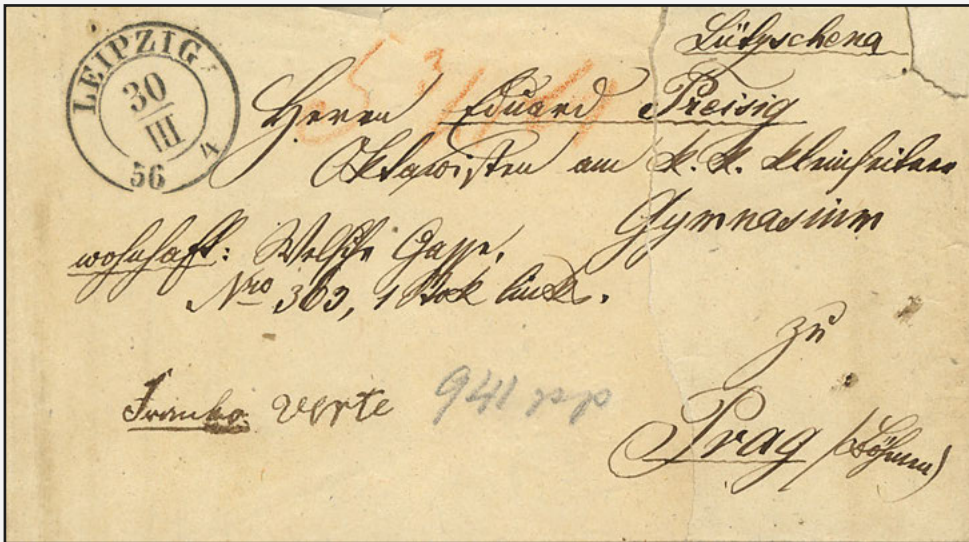 LEIPZIG
30
III
56 4
Lützschena
Herrn Eduard Preisig
Oktavisten am k. k. kleinseitner
Gymnasium
wohnhaft: Welsche Gasse,
Nro 363, 1 Stock links.
zu
Franko
Prag (Böhmen)